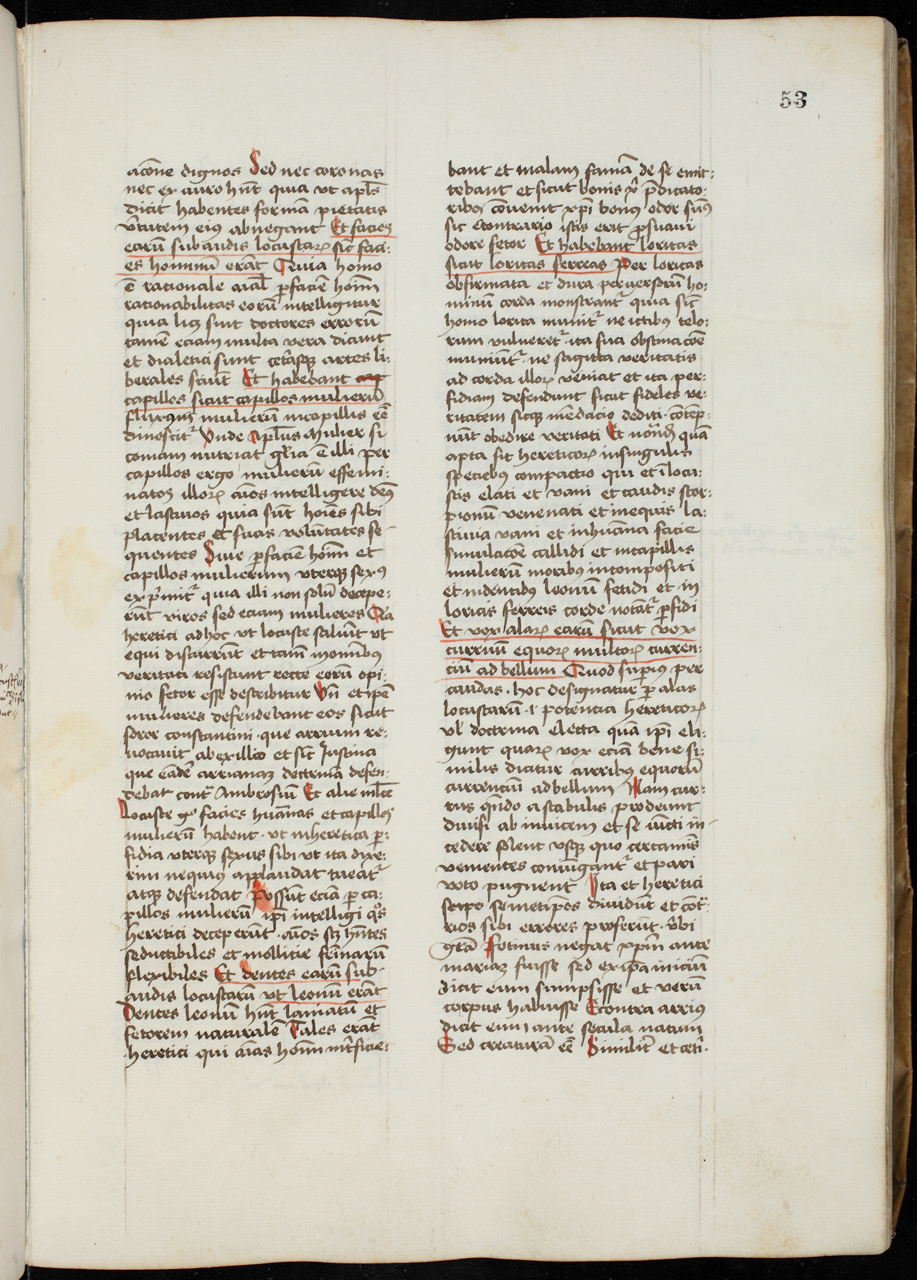 53
acõne dignos Sed nec coronas
nec ex auro hñt quia vt apls̃
dicit habentes formã pietatis
v̾tutem eius abnegant Et facies
earũ subaudis locustarꝝ sic̃ faci-
es hominũ erãt Quia homo
ẽ rationale aial̃ ꝑ faciẽ hoım̃
rationabilitas eorũ intelligitur
quia lic̃ sint doctores errorũ
tamẽ eciam multa vera dicunt
et dialetici sunt ceterasqꝫ artes li-
berales sciũt Et habebant cap
capillos sicut capillos mulierũ
mulierum in capillis eẽ
dinoscit᷑ Vnde Apl̃us Mulier si
comam nutriat gl̃ia ẽ illi per
capillos ergo mulierũ effemi-
natos illorꝝ aĩos intelligere dem᷒
et lasciuos quia sũt hoiẽs sibi
placentes et suas volũtates se-
quentes Siue ꝑ faciẽ hoım̃ et
capillos mulierum vterqꝫ sexꝰ
exp̾mit᷑ quia illi non solũ decepe-
rũt viros sed eciam mulieres Qia
heretici ad hoc vt locuste saliũt vt
equi discurrũt et tam̃ monitibꝰ
veritati resistunt recte eorũ opi-
nio fetor esse describitur Vñ et ip̃e
mulieres defendebant eos sicut
soror constantini que arrium re-
uocauit ab exilio et sic̃ Justina
que eãdẽ arrianaꝫ doctrinã defen-
debat cont᷑ Ambrosiũ Et alie ml̃te
Locuste gͦ facies hũanas et capillos
mulierũ habent vt in heretica ꝑ-
fidia vterqꝫ sexus sibi vt ita dixe-
rim nequius applaudat tueat᷑
atqꝫ defendat Possũt eciã ꝑ ca-
pillos mulierũ ip̃i intelligi qͦs
heretici deceperũt aĩos scꝫ hñtes
seductibiles et mollicie feĩarũ
flexibiles Et dentes earũ sub-
audis locustarũ vt leonũ erãt
Dentes leonũ hñt laniatũ et
fetorem naturalẽ Tales erãt
heretici qui aĩas hoım̃ int̾ficie-
bant et malam famã de se emit-
tebant et sicut bonis xͥ p̾dicato-
ribꝰ cõuenit xp̃i bonus odor sum᷒
sic Contrario istis erat ꝑ suaui
odore fetor Et habebant loricas
sicut loricas ferreas Per loricas
obfirmata et dura peruersorũ ho-
minũ corda monstrant᷑ quia sic̃
homo lorica munit᷑ ne ictibus telo-
rum vulneret᷑ ita sua obstinacõe
muniũt᷑ ne sagitta veritatis
ad corda illorꝝ veniat et ita per-
fidiam defendunt sicut fideles ve-
ritatem sicqꝫ mẽdacio dediti cõtẽp-
nũt obedire veritati Et notãdũ quã
apta sit hereticorꝝ in singulis
speciebꝰ compactio qui et ĩ locu-
stis elati et vani et caudis scor-
pionũ venenati et in equis la-
sciuia vani et in hũana facie
simulacõe callidi et in capillis
mulierũ moribꝰ incompositi
et in dentibꝰ leonũ fetidi et in
loricis ferreis corde notãt᷑ ꝑfidi
Et vox alarꝝ earũ sicut vox
curruũ equorꝝ multorꝝ curren-
ciũ ad bellum Quod supius per
caudas hoc designatur ꝑ alas
locustarũ .i. potencia hereticorꝝ
vl̃ doctrina electa quã ip̃i eli-
gunt quarꝝ vox eciã bene si-
milis dicitur curribꝰ equorũ
currenciũ ad bellum Nam cur-
rus qñdo a stabulis prodeunt
diuisi ab inuicem et se iũcti in-
cedere solent vsqꝫ quo certamĩs
venientes coniungant᷑ et pari
voto pugnent Ita et heretici
sepe semetip̃os diuidũt et cõt᷑-
rios sibi errores proferũt v̾bi
gr̃a Fotinus negat xp̃m ante
mariaꝫ fuisse sed ex ip̃a iniciũ
dicit eum sumpsisse et verũ
corpus habuisse Econtra arrius
dicit eum ante secula natum
Sed creaturã eẽ Similit̾ et cet̾i